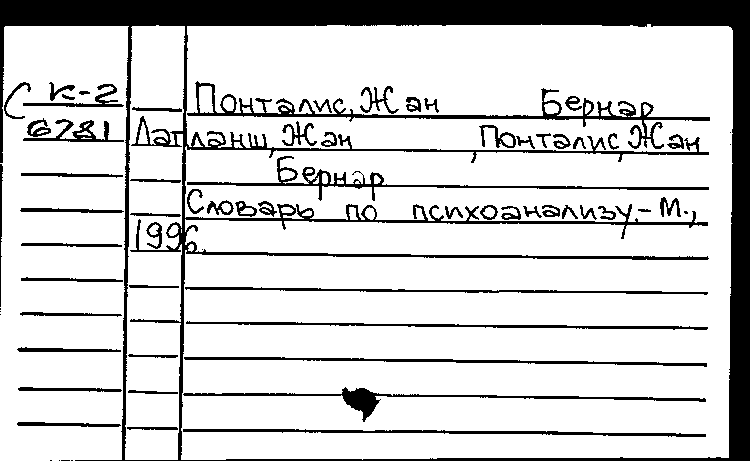 С К-2 Понталис, Жан Бернар
6781 Лапланш, Жан, Понталис, Жан
Бернар
Словарь по психоанализу.- М.,
1996.